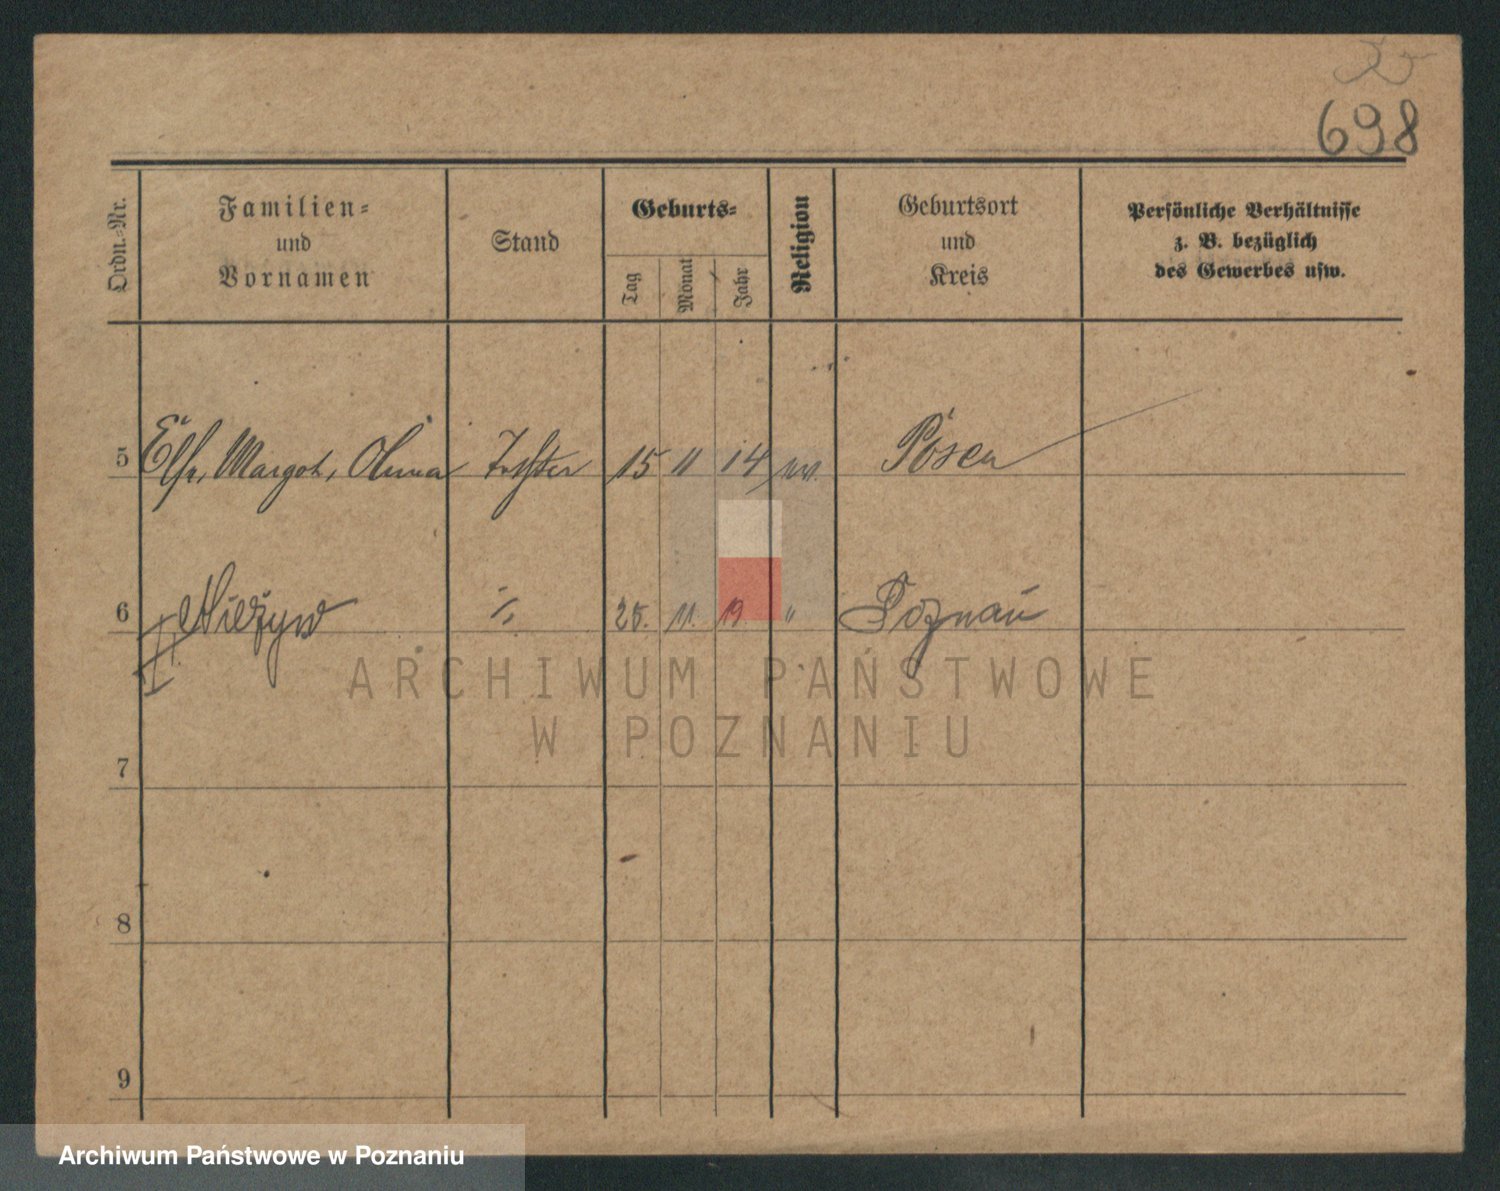 698
Ordn.-Nr.
Familien-
und
Vornamen
Stand
Geburts-
Tag
Monat
Jahr
Religion
Geburtsort
und
Kreis
Persönliche Verhältnisse
z. B. bezüglich
des Gewerbes usw.
5 Margot, Tochter 15 11 14 ev. Posen
6 Nieżyw " 25. 11. 19. " Poznań
ARCHIWUM PAŃSTWOWE
W POZNANIU
7
8
9
Archiwum Państwowe w Poznaniu